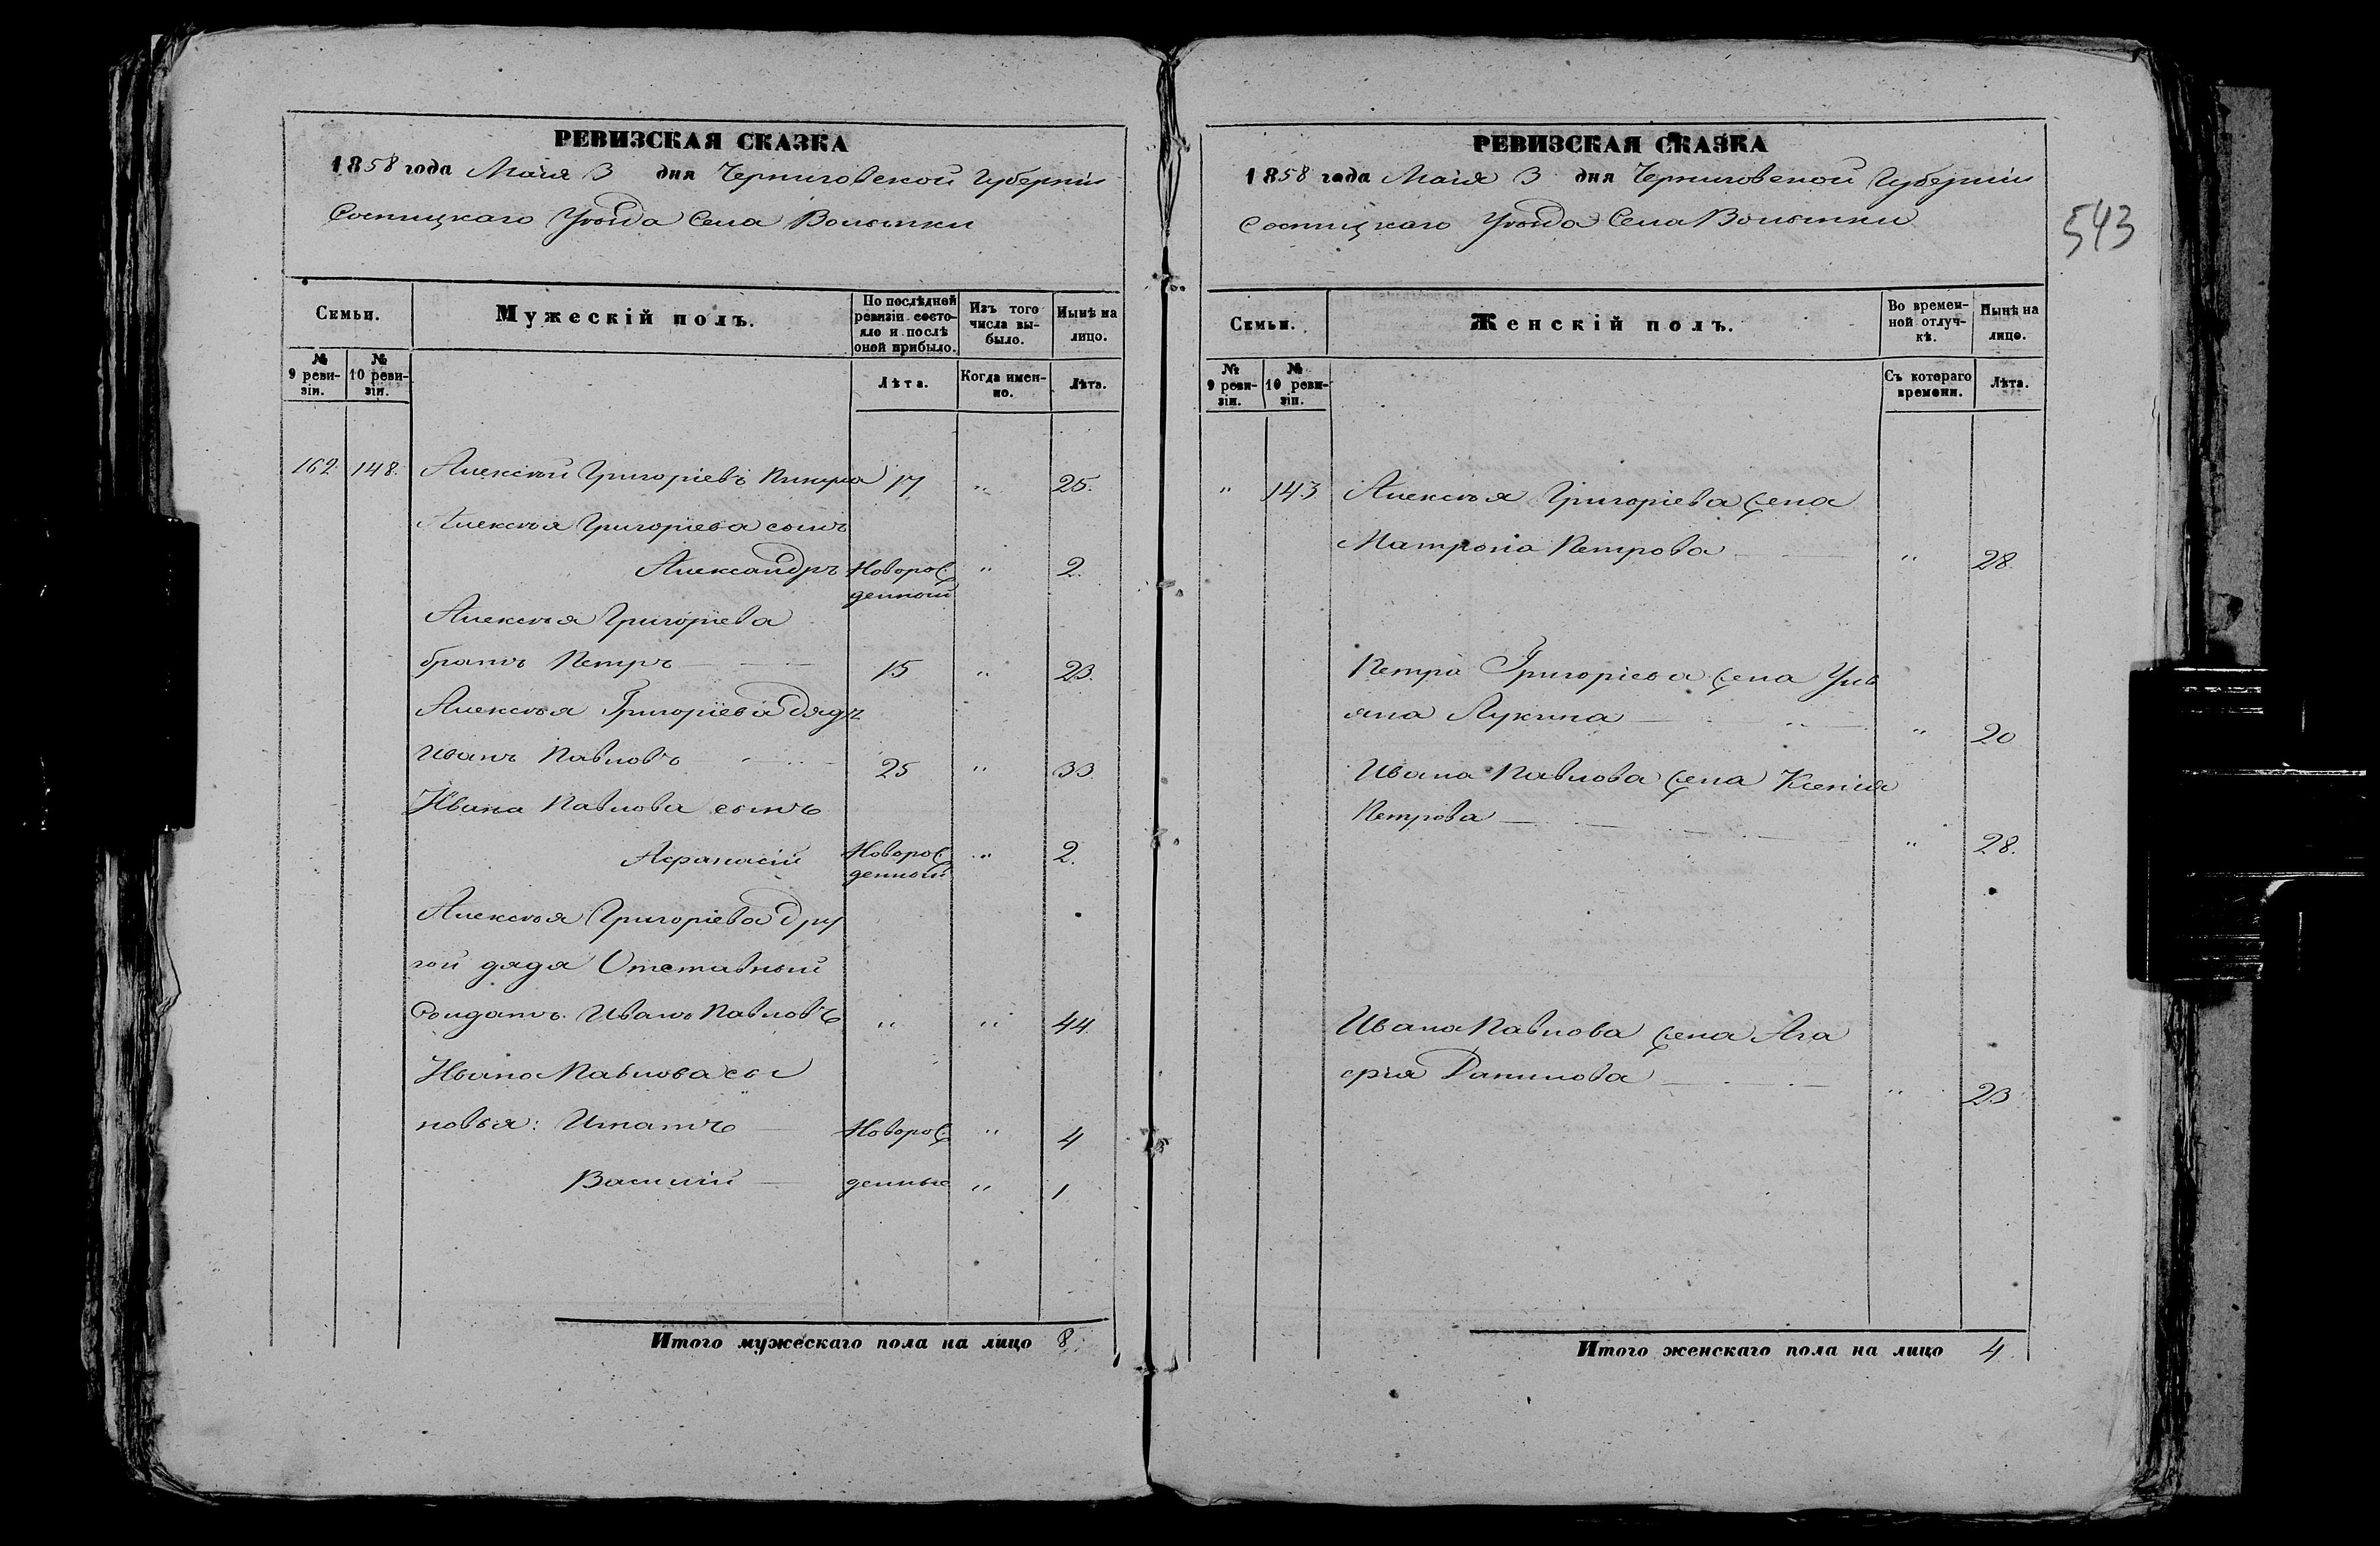 РЕВИЗСКАЯ СКАЗКА
1858 года Маія 3 дня Черниговской Губерніи
Сосницкаго Уѣзда Села Волынки
Семьи.
Мужескій полъ.
По послѣдней ревизіи состояло и послѣ оной прибыло.
Изъ того числа выбыло.
Нынѣ на лицо.
№ 9 ревизіи.
№ 10 ревизіи.
Лѣта.
Когда именно.
Лѣта.
162. 148. Алексѣй Григоріевъ 17 " 25.
Алексѣя Григоріева сынъ
Александръ Новорож " 2.
денной
Алексѣя Григоріева
братъ Петръ 15 " 23.
Алексѣя Григоріева дядя
Иванъ Павловъ 25 " 33.
Ивана Павлова сынъ
Афанасій Новорож " 2.
денной
Алексѣя Григоріева дру
гой дядя Отставный
Солдатъ Иванъ Павловъ " " 44.
Ивана Павлова сы
новья: Игнатъ Новорож " 4
Василій денные " 1
Итого мужескаго пола на лицо 8.
РЕВИЗСКАЯ СКАЗКА
1858 года Маія 3 дня Черниговской Губерніи
Сосницкаго Уѣзда Села Волынки
543
Семьи.
Женскій полъ.
Во временной отлучкѣ.
Нынѣ на лицо.
№ 9 ревизіи.
№ 10 ревизіи.
Съ котораго времени.
Лѣта.
" 143 Алексѣя Григоріева жена
Матрона Петрова " 28.
Петра Григоріева жена Уль
яна Лукина " 20
Ивана Павлова жена Ксенія
Петрова " 28.
Ивана Павлова жена Ага
фія Данилова " 23
Итого женскаго пола на лицо 4.